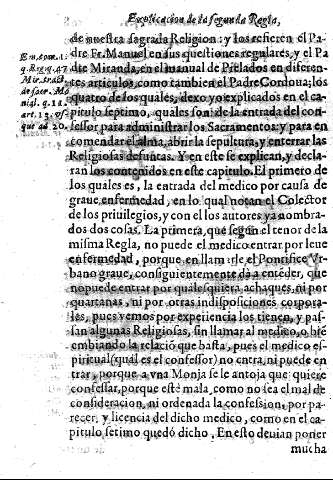 Explicacion de la segunda Regla,
de nuestra sagrada Religion: y los refieren el Pa-
dre Fr. Manuel en sus questiones regulares, y el Pa
dre Miranda, en el manual de Prelados en diferen-
tes articulos, como tambien el Padre Cordoua; los
quatro de los quales, dexo yo explicados en el ca-
pitulo septimo, quales son: de la entrada del con-
fessor para administrar los Sacramentos: y para en
comendar el alma, abrir la sepultura, y enterrar las
Religiosas defuntas. Y en este se explican, y decla-
ran los contenidos en este capitulo. El primero de
los quales es, la entrada del medico por causa de
graue enfermedad, en lo qual notan el Colector
de los priuilegios, y con el los autores ya nombra-
dos dos cosas. La primera, que segun el tenor de la
misma Regla, no puede el medico entrar por leue
enfermedad, porque en llamarle el Pontifice Vr-
bano graue, consiguientemente dà a enteder, que
no puede entrar por qualesquiera achaques, ni por
quartanas, ni por otras indisposiciones corpora-
les, pues vemos por experiencia los tienen, y pas-
san algunas Religiosas, sin llamar al medico, o biē
embiando la relaciō que basta, pues el medico es-
piritual (qual es el confessor) no entra, ni puede en
trar, porque a vna Monja se le antoja que quiere
confessar, porque esté mala, como no sea el mal de
consideracion, ni ordenada la confession, por pa-
recer, y licencia del dicho medico, como en el ca-
pitulo setimo quedó dicho. En esto deuian poner
mucha
En, tom. 1.
q. R. q. 47.
Mir. tract.
de sacr. Mo
nial. q. 11.
art. 13. vs-
que ad 20.